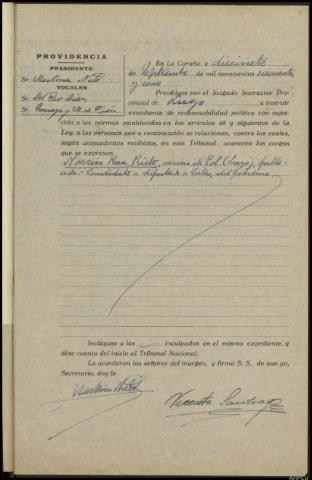 PROVIDENCIA
PRESIDENTE
Sr.
VOCALES
Sr. Del Río
Sr.
En La Coruña, a diecisiete
de septiembre de mil novecientos cuarenta
y uno
Procédase por el Juzgado Instructor Pro-
vincial de Lugo a instruir
expediente de responsabilidad política con suje-
ción a las normas establecidas en los artículos 45 y siguientes de la
Ley, a las personas que a continuación se relacionan, contra los cuales,
según antecedentes recibidos, en este Tribunal, aparecen los cargos
que se expresan:
Narciso Prieto, vecino de Pol (Lugo), falle-
cido.- Candidato a Diputado a Cortes, del Gobierno.
Inclúyase a los inculpados en el mismo expediente, y
dése cuenta del inicio al Tribunal Nacional.
Lo acordaron los señores del margen, y firma S. S. de que yo,
Secretario, doy fe.
Vicente Santiago